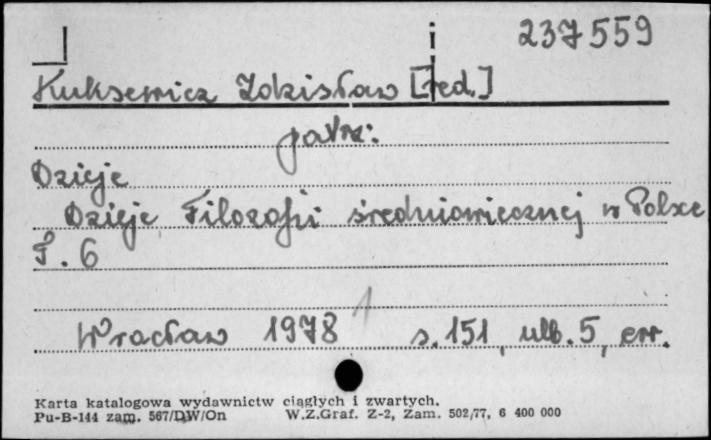 237559
Kuksewicz Zdzisław [red.]
patrz:
Dzieje
Dzieje Filozofii średniowiecznej w Polsce
T. 6
1
Wrocław 1978 s. 151, ulb. 5, err.
Karta katalogowa wydawnictw ciągłych i zwartych.
Pu-B-144 zam. 567/DW/On W.Z.Graf. Z-2, Zam. 502/77, 6 400 000